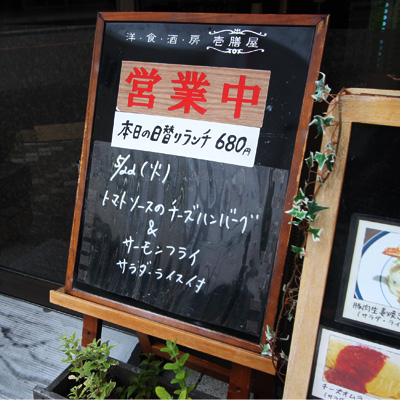 洋・食・酒・房 壱膳屋
営業中
本日の日替りランチ 680円
5/22 (火)
トマトソースのチーズハンバーグ
&
サーモンフライ
サラダ・ライス付
豚肉生姜焼
(サラダ・ライ
チーズオムラ
(サラダ